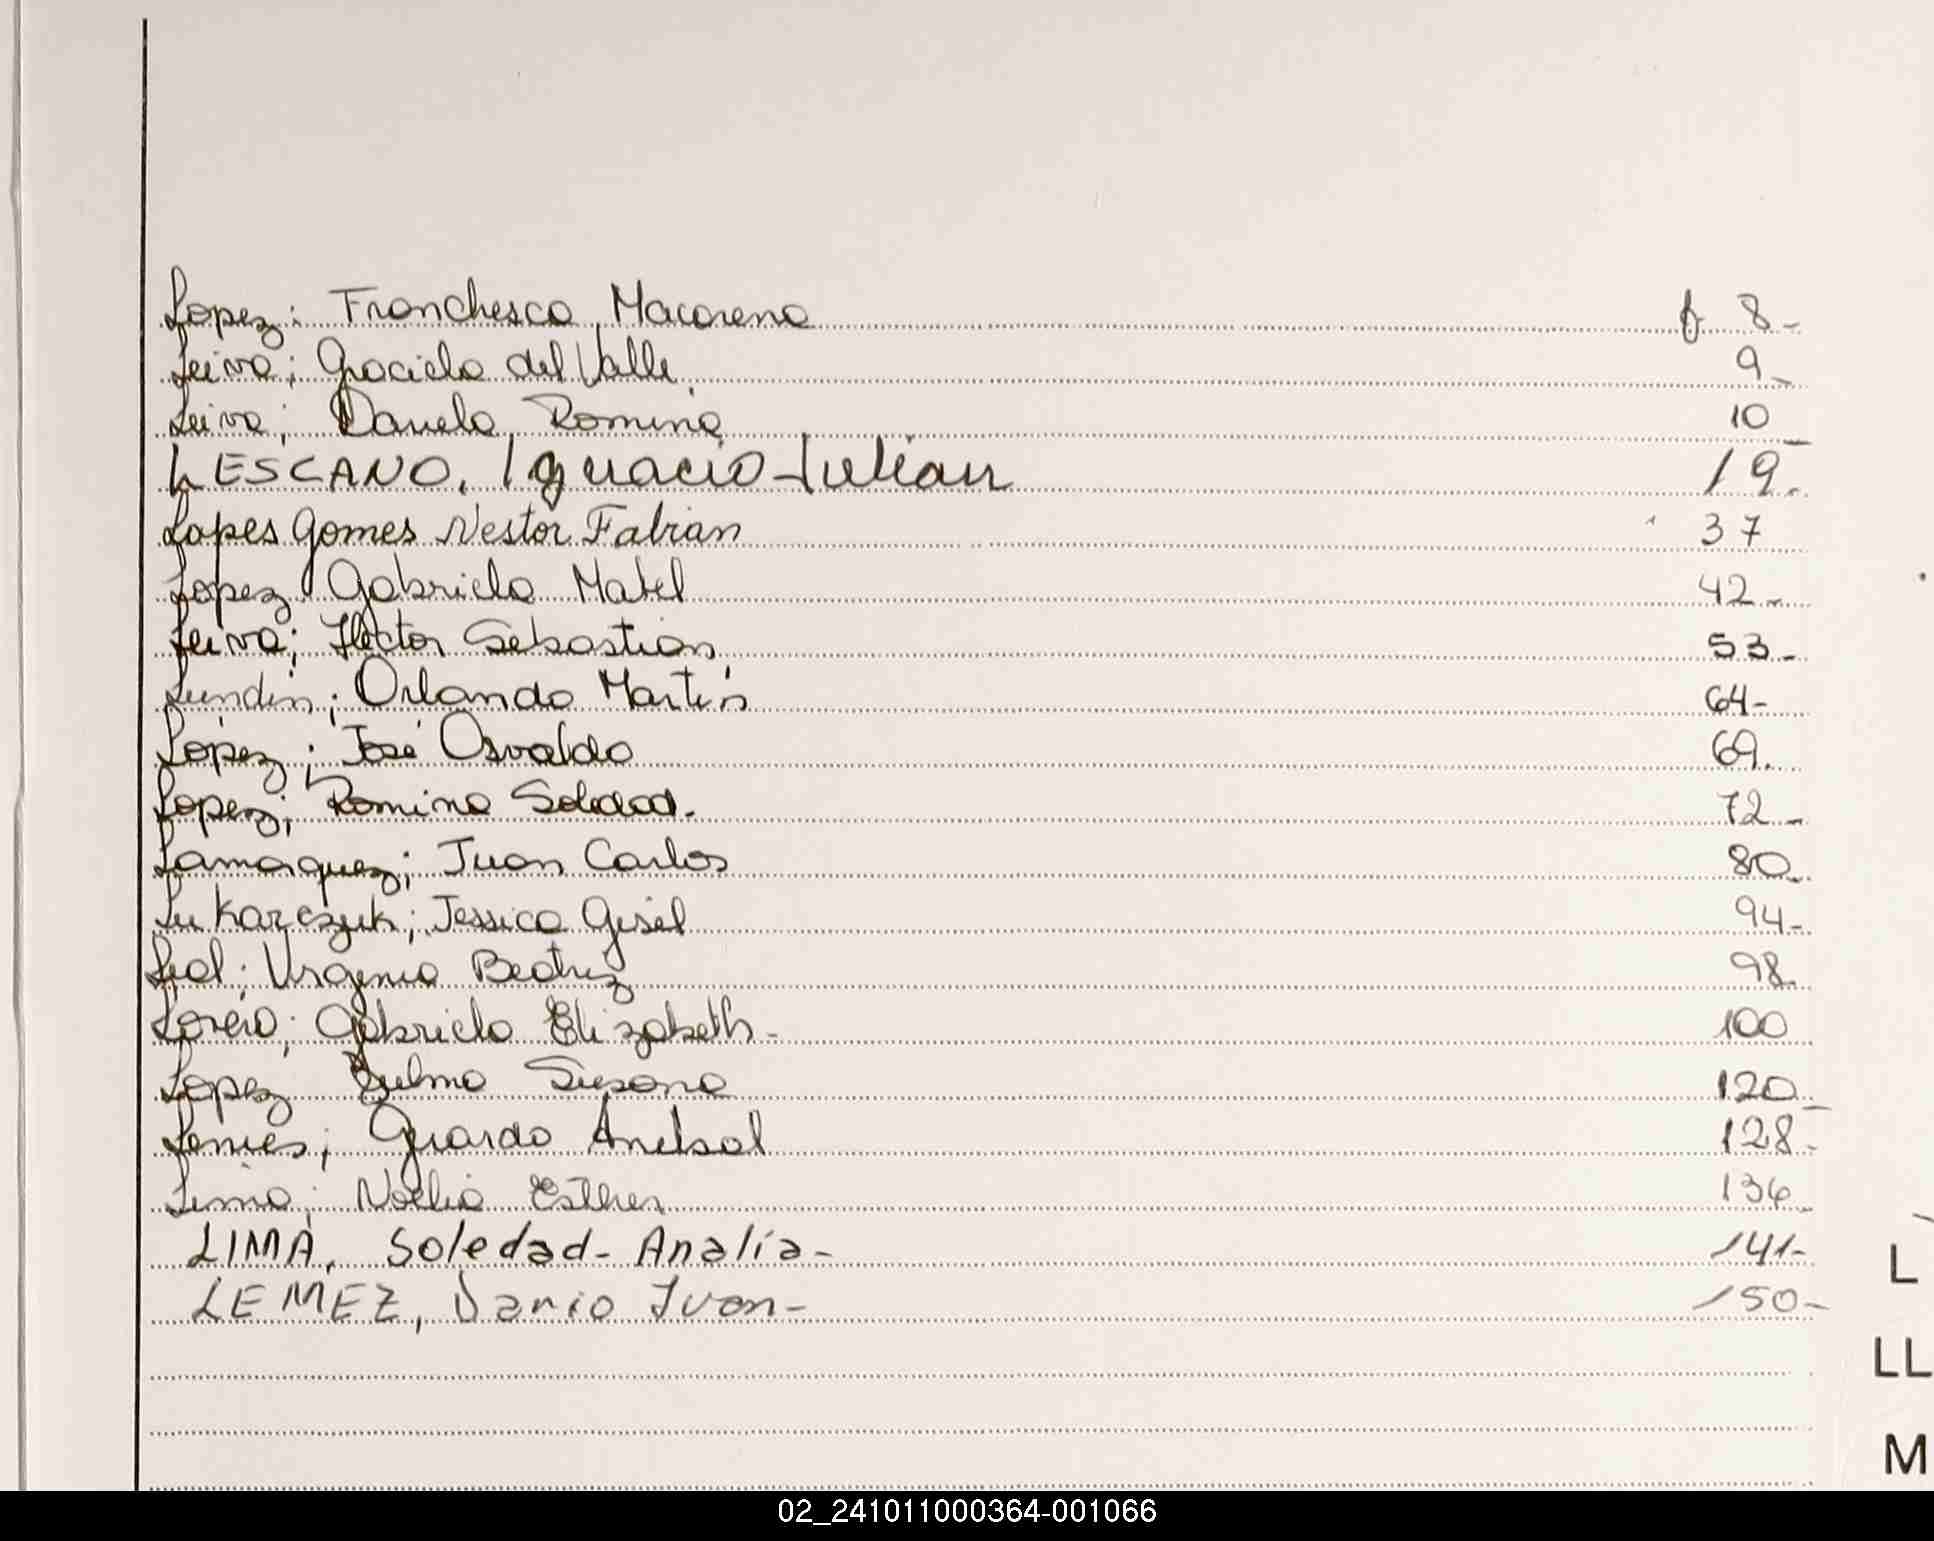 Lopez; Franchesca Macarena f 8-
Leiva; Graciela del Valle 9-
Leiva; Daniela Romina 10-
LESCANO, Ignacio Julian 19-
Lopes Gomes Nestor Fabian 37
Lopez Gabriela Mabel 42-
Leiva; Hector Sebastian 53-
Lundin; Orlando Martin 64-
Lopez; José Osvaldo 69.
Lopez; Romina Soledad. 72-
Lamarquez; Juan Carlos 80-
Lukarczuk; Jessica Gisel 94-
Leal; Virginia Beatriz 98-
Gabriela Elizabeth- 100
Lopez Zulma Susana 120-
Lemes; Gerardo 128-
Lima; Noelia Esther 136-
LIMA, Soledad- Analía- 141-
LEMEZ, Dario Ivan- 150-
L
LL
M
02_241011000364-001066